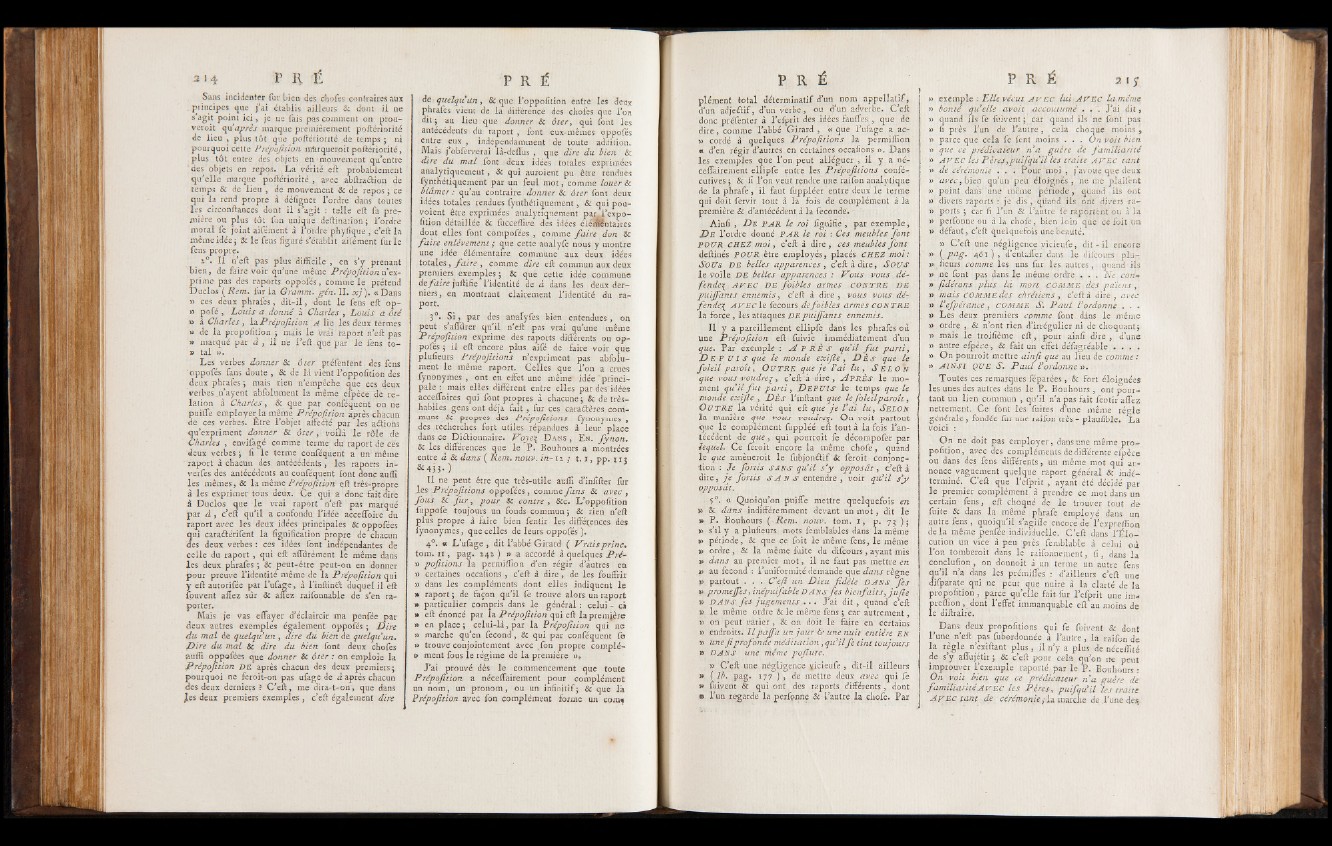 214 P R É
Sans incidenter sur bien des choses contraires aux
principes que j'ai établis ailleurs & dont il ne
s'agit point ici, je ne sais pas comment on prou-
veroit qu'après marque premièrement postériorité
de lieu, plus tôt que postériorité de temps ; ni
pourquoi cette Préposition marqueroit postériorité,
plus tôt entre des objets en mouvement qu'entre
des objets en repos. La vérité est probablement
qu'elle marque postériorité, avec abstraction de
temps & de lieu, de mouvement & de repos ; ce
qui la rend propre à désigner l'ordre dans toutes
les circonstances dont il s'agit : telle est sa pre-
mière ou plus tôt son unique destination ; l'ordre
moral se joint aisément à l'ordre physique, c'est la
même idée ; & le sens figuré s'établit aisément sur le
sens propre.
2°. Il n'est pas plus difficile, en s'y prenant
bien, de faire voir qu'une même Préposition n'ex-
prime pas des raports opposés, comme le prétend
Duclos (Rem. sur la Gramm. gén. II. xj). « Dans
» ces deux phrases, dit-il, dont le sens est op-
» posé, Louis a donné à Charles, Louis a ôté
» à Charles, la Préposition A lie les deux termes
» de la proposition ; mais le vrai raport n'est pas
» marqué par à, il ne l'est que par le sens to-
» tal ».
Les verbes donner & ôter présentent des sens
opposés sans doute, & de là vient l'opposition des
deux phrases ; mais rien n'empêche que ces deux
verbes n'ayent absolument la même espèce de re-
lation à Charles, & que par conséquent on ne
puisse employer la même Préposition après chacun
de ces verbes. Être l'objet affecté par les actions
qu'expriment donner & ôter, voilà le rôle de
Charles, envisagé comme terme du raport de ces
deux verbes ; si le terme conséquent a un même
raport à chacun des antécédents, les raports in-
verses des antécédents au conséquent sont donc aussi
les mêmes, & la même Préposition est très-propre
à les exprimer tous deux. Ce qui a donc fait dire
à Duclos que le vrai raport n'est pas marqué
par à, c'est qu'il a confondu l'idée accessoire du
raport avec les deux idées principales & opposées
qui caractérisent la signification propre de chacun
des deux verbes : ces idées sont indépendantes de
celle du raport, qui est assûrément le même dans
les deux phrases ; & peut-être peut-on en donner
pour preuve l'identité même de la Préposition qui
y est autorisée par l'usage, à l'instinct duquel il est
souvent assez sûr & assez raisonnable de s'en ra-
porter.
Mais je vas essayer d'éclaircir ma pensée par
deux autres exemples également opposés ; Dire
du mal de quelqu'un, dire du bien de quelqu'un.
Dire du mal & dire du bien sont deux choses
aussi opposées que donner & ôter : on emploie la
Préposition DE après chacun des deux premiers ;
pourquoi ne feroit-on pas usage de à après chacun
des deux derniers ? C'est, me dira-t-on, que dans
les deux premiers exemples, c'est également dire
P R É
de quelqu'un, & que l'opposition entre les deux
phrases vient de la différence des choses que l'on
dit ; au lieu que donner & ôter, qui sont les
antécédents du raport, sont eux-mêmes opposés
entre eux, indépendamment de toute addition.
Mais j'observerai là-dessus, que dire du bien &
dire du mal sont deux idées totales exprimées
analytiquement, & qui auroient pu être rendues
synthétiquement par un seul mot, comme louer &
blâmer : qu'au contraire donner & ôter sont deux
idées totales rendues synthétiquement, & qui pou-
voient être exprimées analytiquement par l'expo-
sition détaillée & successive des idées élémentaires
dont elles sont composées, comme faire don &
faire enlèvement ; que cette analyse nous y montre
une idée élémentaire commune aux deux idées
totales, faire, comme dire est commun aux deux
premiers exemples ; & que cette idée commune
de faire justifie l'identité de à dans les deux der-
niers, en montrant clairement l'identité du ra-
port.
3°. Si, par des analyses bien entendues, on
peut s'assûrer qu'il n'est pas vrai qu'une même
Préposition exprime des raports différents ou op-
posés ; il est encore plus aisé de faire voir que
plusieurs Prépositions n'expriment pas absolu-
ment le même raport. Celles que l'on a crues
synonymes, ont en effet une même idée princi-
pale : mais elles diffèrent entre elles par des idées
accessoires qui sont propres à chacune ; & de très-
habiles gens ont déja fait, sur ces caractères com-
muns & propres des Prépositions synonymes,
des recherches fort utiles, répandues à leur place
dans ce Dictionnaire. Voyez DANS, EN. synon.
& les différences que le P. Bouhours a montrées
entre à & dans (Rem. nouv. in-12 ; t. 1, pp. 113
& 433.)
Il ne peut être que très-utile aussi d'insister sur
les Prépositions opposées, comme sans & avec,
sous & sur, pour & contre, &c. L'opposition
suppose toujours un fonds commun ; & rien n'est
plus propre à faire bien sentir les différences des
synonymes, que celles de leurs opposés).
4°. « L'usage, dit l'abbé Girard (Vrais princ.
tom. II, pag. 242) » a accordé à quelques Pré-
» positions la permission d'en régir d'autres en
» certaines occasions, c'est à dire, de les souffrir
» dans les compléments dont elles indiquent le
» raport ; de façon qu'il se trouve alors un raport
» particulier compris dans le général : celui-cà
» est énoncé par la Préposition qui est la première
» en place ; celui-là, par la Préposition qui ne
» marche qu'en second, & qui par conséquent se
» trouve conjointement avec son propre complé-
» ment sous le régime de la première ».
J'ai prouvé dès le commencement que toute
Préposition a nécessairement pour complément
un nom, un pronom, ou un infinitif ; & que la
Préposition avec son complément forme un com-
P R É
plément total déterminatif d'un nom appellatif,
d'un adjectif, d'un verbe, ou d'un adverbe. C'est
donc présenter à l'esprit des idées fausses, que de
dire, comme l'abbé Girard, « que l'usage a ac-
» cordé à quelques Prépositions la permission
» d'en régir d'autres en certaines occasions ». Dans
les exemples que l'on peut alléguer, il y a né-
cessairement ellipse entre les Prépositions consé-
cutives ; & si l'on veut rendre une raison analytique
de la phrase, il faut suppléer entre deux le terme
qui doit servir tout à la fois de complément à la
première & d'antécédent à la seconde.
Ainsi, DE PAR le roi signifie, par exemple,
DE l'ordre donné PAR le roi : Ces meubles sont
POUR CHEZ moi, c'est à dire, ces meubles sont
destinés POUR être employés, placés CHEZ moi :
SOUS DE belles apparences, c'est à dire, SOUS
le voile DE belles apparences : Vous vous dé-
fendez AVEC DE foibles armes CONTRE DE
puissants ennemis, c'est à dire, vous vous dé-
fendez AVEC le secours de foibles armes CONTRE
la force, les attaques DE puissants ennemis.
Il y a pareillement ellipse dans les phrases où
une Préposition est suivie immédiatement d'un
que. Par exemple : APRÈS qu'il fut parti,
DEPUIS que le monde existe, DÈS que le
soleil paroît, OUTRE que je l'ai lu, SELON
que vous voudrez, c'est à dire, APRÈS le mo-
ment qu'il fut parti, DEPUIS le temps que le
monde existe, DÈS l'instant que le soleil paroît,
OUTRE la vérité qui est que je l'ai lu, SELON
la manière que vous voudrez. On voit partout
que le complément suppléé est tout à la fois l'an-
técédent de que, qui pourroit se décomposer par
lequel. Ce seroit encore la même chose, quand
le que amèneroit le subjonctif & seroit conjonc-
tion : Je sortis SANS qu'il s'y opposât, c'est à
dire, je sortis SANS entendre, voir qu'il s'y
opposât.
5°. « Quoiqu'on puisse mettre quelquefois en
» & dans indifféremment devant un mot, dit le
» P. Bouhours (Rem. nouv. tom. 1, p. 73) ;
» s'il y a plusieurs mots semblables dans la même
» période, & que ce soit le même sens, le même
» ordre, & la même suite du discours, ayant mis
» dans au premier mot, il ne faut pas mettre en
» au second : l'uniformité demande que dans règne
» partout . . . C'est un Dieu fidèle DANS ses
» promesses, inépuisable DANS ses bienfaits, juste
» DANS ses jugements . . . J'ai dit, quand c'est
» le même ordre & le même sens ; car autrement,
» on peut varier, & on doit le faire en certains
» endroits. Il passa un jour & une nuit entière EN
» une si profonde méditation, qu'il se tint toujours
» DANS une même posture.
» C'est une négligence vicieuse, dit-il ailleurs
» (Ib. pag. 177), de mettre deux avec qui se
» suivent & qui ont des raports différents, dont
» l'un regarde la personne & l'autre la chose. Par
P R É 215
» exemple : Elle vécut AVEC lui AVEC la même
» bonté qu'elle avoit accoutumé . . . J'ai dit,
» quand ils se suivent ; car quand ils ne sont pas
» si près l'un de l'autre, cela choque moins,
» parce que cela se sent moins . . . On voit bien
» que ce prédicateur n'a guère de familiarité
» AVEC les Pères, puisqu'il les traite AVEC tant
» de cérémonie . . . Pour moi, j'avoue que deux
» avec, bien qu'un peu éloignés, ne me plaisent
» point dans une même période, quand ils ont
» divers raports : je dis, quand ils ont divers ra-
» ports ; car si l'on & l'autre se raportent ou à la
» personne ou à la chose, bien loin que ce soit un
» défaut, c'est quelquefois une beauté.
» C'est une négligence vicieuse, dit-il encore
» (pag. 461), d'entasser dans le discours plu-
» sieurs comme les uns sur les autres, quand ils
» ne sont pas dans le même ordre . . . Ne con-
» sidérons plus la mort COMME des païens,
» mais COMME des chrétiens, c'est à dire, avec
» l'espérance, COMME S. Paul l'ordonne . . .
» Les deux premiers comme sont dans le même
» ordre, & n'ont rien d'irrégulier ni de choquant ;
» mais le troisième est, pour ainsi dire, d'une
» autre espèce, & fait un effet désagréable . . . .
» On pourroit mettre ainsi que au lieu de comme :
» AINSI QUE S. Paul l'ordonne ».
Toutes ces remarques séparées, & fort éloignées
les unes des autres dans le P. Bouhours, ont pour-
tant un lien commun, qu'il n'a pas fait sentir assez
nettement. Ce sont les suites d'une même règle
générale, fondée sur une raison très-plausible. La
voici :
On ne doit pas employer, dans une même pro-
position, avec des compléments de différente espèce
ou dans des sens différents, un même mot qui an-
nonce vaguement quelque raport général & indé-
terminé. C'est que l'esprit, ayant été décidé par
le premier complément à prendre ce mot dans un
certain sens, est choqué de le trouver tout de
suite & dans la même phrase employé dans un
autre sens, quoiqu'il s'agisse encore de l'expression
de la même pensée individuelle. C'est dans l'Élo-
cution un vice à peu près semblable à celui où
l'on tomberoit dans le raisonnement, si, dans la
conclusion, on donnoit à un terme un autre sens
qu'il n'a dans les prémisses : d'ailleurs c'est une
disparate qui ne peut que nuire à la clarté de la
proposition, parce qu'elle fait sur l'esprit une im-
pression, dont l'effet immanquable est au moins de
le distraire.
Dans deux propositions qui se suivent & dont
l'une n'est pas subordonnée à l'autre, la raison de
la règle n'existant plus, il n'y a plus de nécessité
de s'y assujétir ; & c'est pour cela qu'on ne peut
improuver l'exemple raporté par le P. Bouhours :
On voit bien que ce prédicateur n'a guère de
familiarité AVEC les Pères, puisqu'il les traite
AVEC tant de cérémonie ; la marche de l'une des